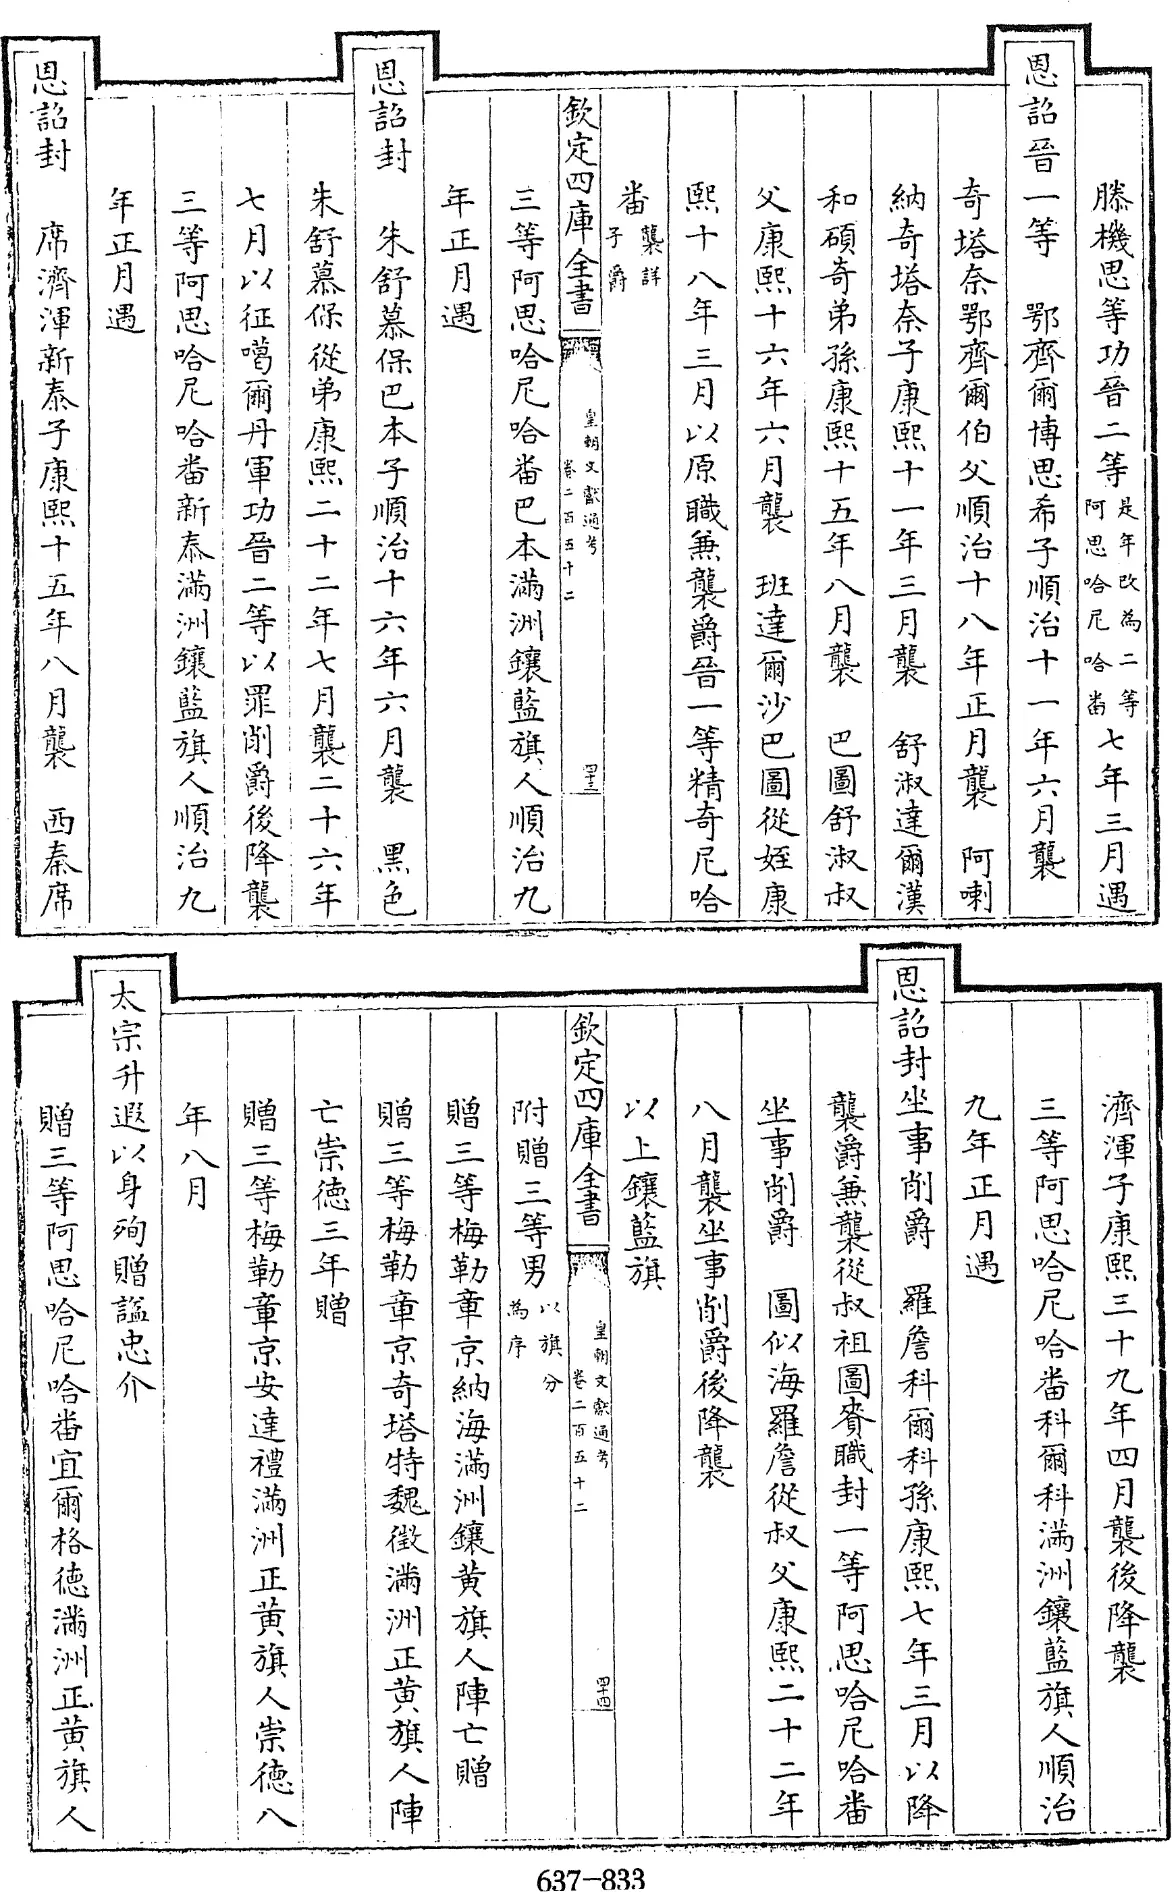 滕機思等功晉二等是年改為二等阿思哈尼哈番七年三月遇
恩詔晉一等　鄂齊爾博思希子順治十一年六月襲
奇塔奈鄂齊爾伯父順治十八年正月襲　阿喇
納奇塔奈子康熙十一年三月襲　舒淑達爾漢
和碩奇弟孫康熙十五年八月襲　巴圖舒淑叔
父康熙十六年六月襲　班達爾沙巴圖從姪康
熙十八年三月以原職兼襲爵晉一等精奇尼哈
番襲詳子爵
欽定四庫全書　皇朝文獻通考卷二百五十二　四十三
三等阿思哈尼哈番巴本滿洲鑲藍旗人順治九
年正月遇
恩詔封　朱舒慕保巴本子順治十六年六月襲　黑色
朱舒慕保從弟康熙二十二年七月襲二十六年
七月以征噶爾丹軍功晉二等以罪削爵後降襲
三等阿思哈尼哈番新泰滿洲鑲藍旗人順治九
年正月遇
恩詔封　席濟渾新泰子康熙十五年八月襲　西秦席
濟渾子康熙三十九年四月襲後降襲
三等阿思哈尼哈番科爾科滿洲鑲藍旗人順治
九年正月遇
恩詔封坐事削爵　羅詹科爾科孫康熙七年三月以降
襲爵兼襲從叔祖圖賚職封一等阿思哈尼哈番
坐事削爵　圖似海羅詹從叔父康熙二十二年
八月襲坐事削爵後降襲
以上鑲藍旗
欽定四庫全書　皇朝文獻通考卷二百五十二　四十四
附贈三等男以旗分為序
贈三等梅勒章京納海滿洲鑲黃旗人陣亡贈
贈三等梅勒章京奇塔特魏徵滿洲正黃旗人陣
亡崇德三年贈
贈三等梅勒章京安達禮滿洲正黃旗人崇德八
年八月
太宗升遐以身殉贈諡忠介
贈三等阿思哈尼哈番宜爾格德滿洲正黃旗人
637-833